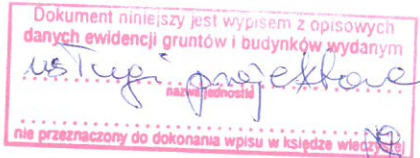 Dokument niniejszy jest wypisem z opisowych
danych ewidencji gruntów i budynków wydanym
usługi projektowe
nazwa jednostki
nie przeznaczony do dokonania wpisu w księdze wieczystej